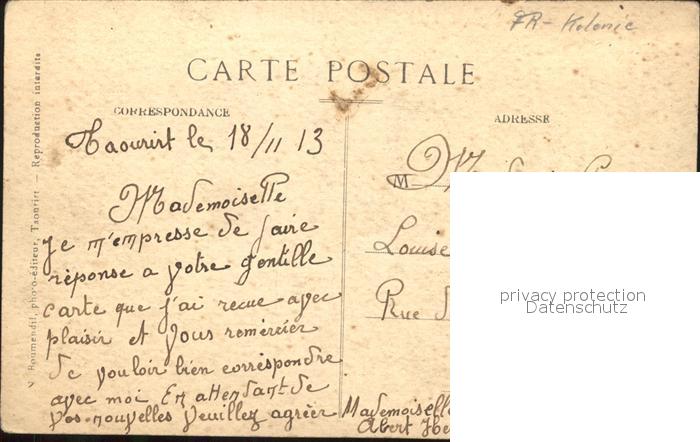 FR - Kolonie
CARTE POSTALE
CORRESPONDANCE
ADRESSE
Taourirt le 18/11 13
Mademoiselle
Je m'empresse de faire
réponse a votre gentille
carte que j'ai recue avec
plaisir et vous remercier
de vouloir bien correspondre
avec moi En attendant de
vos nouvelles veuillez agréer Mademoiselle
Abert
M
Louise
Rue
privacy protection
Datenschutz
Boumendil, photo-éditeur, Taourirt - Reproduction interdite